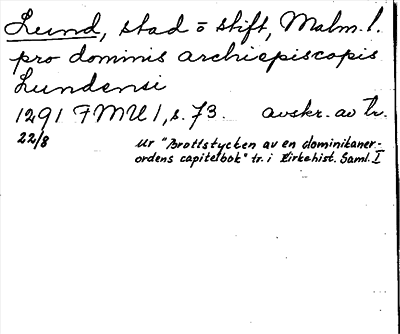 Lund, stad o stift, Malm. l.
pro dominis archiepiscopis
Lundensi
1291 FMU 1, s. 73. avskr. av tr.
22/8
Ur "Brottstycken av en dominikaner-
ordens capitelbok" tr. i Kirkehist. Saml. I